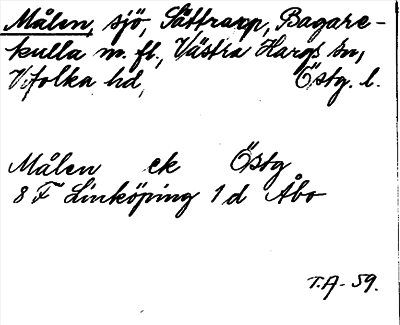 Målen, sjö, Sättrarp, Bagare-
kulla m. fl., Västra Hargs sn,
Vifolka hd, Östg. l.
Målen ek Östg
8 F Linköping 1 d Åbo
T.A- 59.